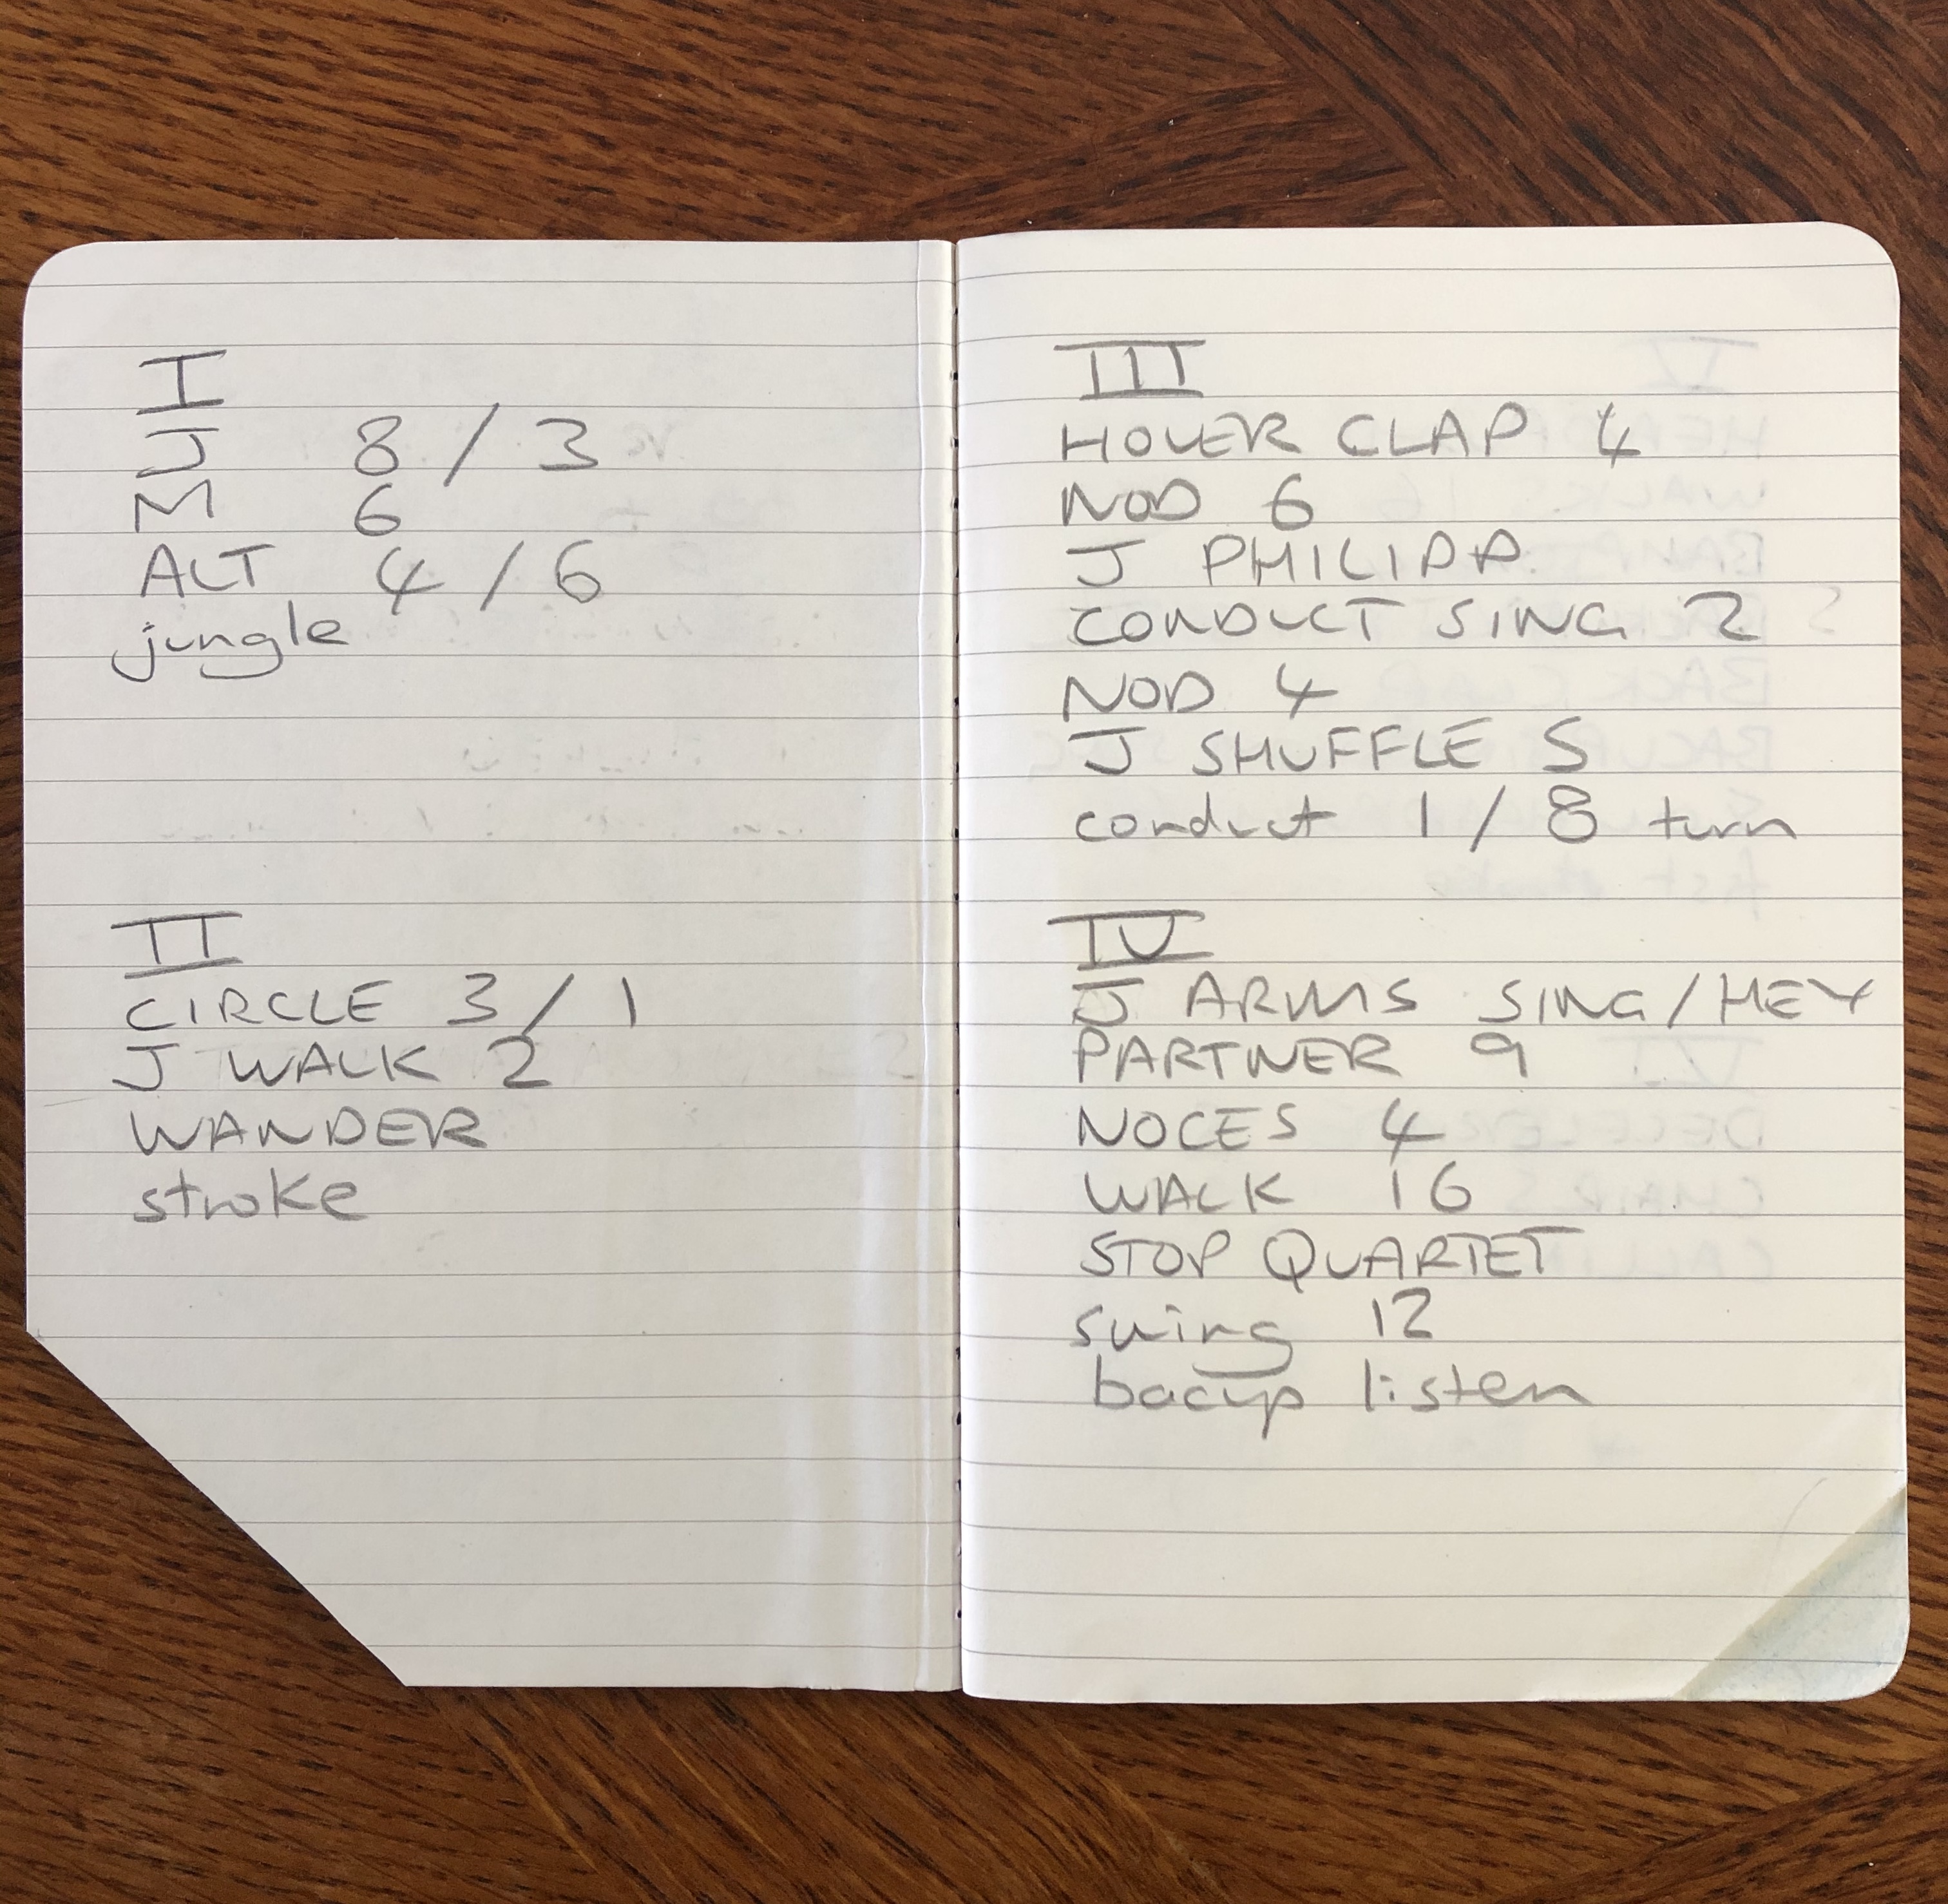 I
J 8 / 3
M 6
ALT 4 / 6
jungle
II
CIRCLE 3 / 1
J WALK 2
WANDER
stroke
III
HOVER CLAP 4
NOD 6
J PHILIPP
CONDUCT SING 2
NOD 4
J SHUFFLE 5
conduct 1 / 8 turn
IV
J ARMS SING/HEY
PARTNER 9
NOCES 4
WALK 16
STOP QUARTET
swing 12
bacup listen